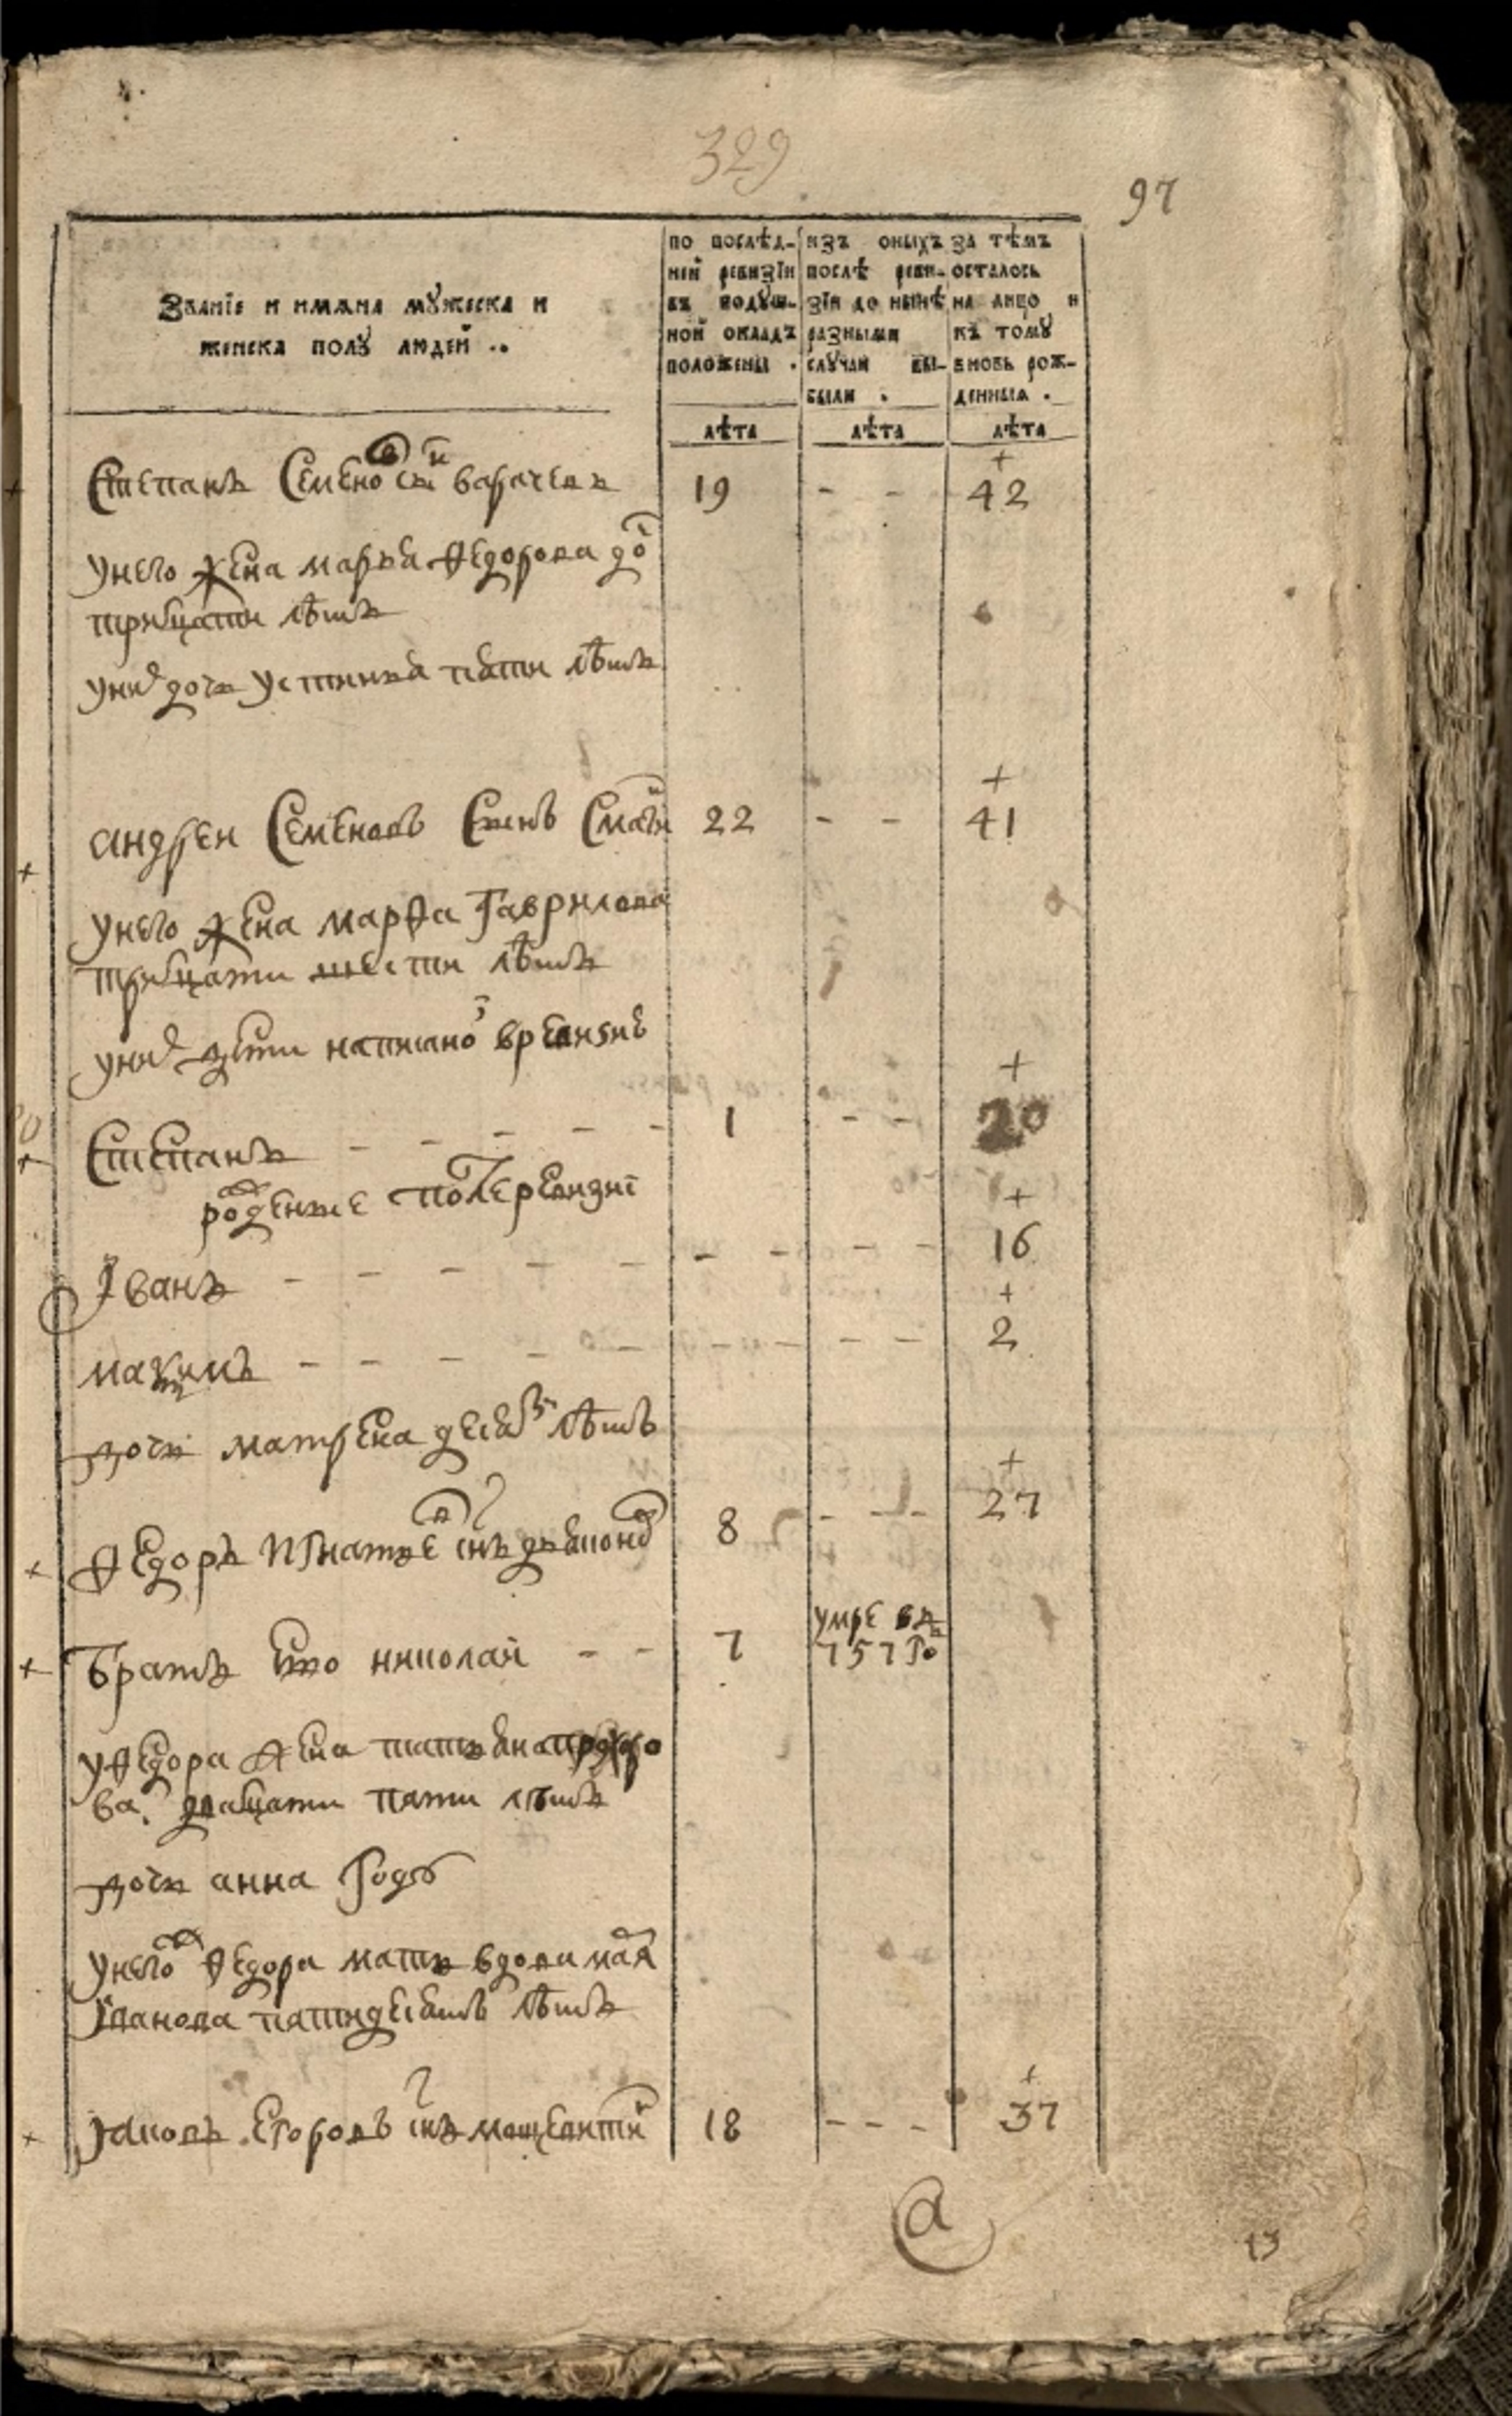 329
97
Званїе и имѧна мꙋжеска и
женска полꙋ людей ..
по послѣд-
ней ревизїи
въ подꙋш-
ной окладъ
положены .
изъ оныхъ
послѣ реви-
зїи до нынѣ
разными
слꙋчаи вы-
были .
за тѣмъ
осталось
на лицо и
къ томꙋ
вновь рож-
денныя .
лѣта лѣта лѣта
+
Степанъ Семенов снъ 19 - - 42
у него жена марья Ѳедорова до
тритцати лѣтъ
у них дочь устинья пяти лѣтъ
+
андреи Семеновъ Сынъ 22 - - 41
у него жена марѳа Гаврилова
тритцати шести лѣтъ
у них дети написано в ревизиѣ
+
Степанъ - - - - - 1 - - 20
рожденые после ревизиі
+
Іванъ - - - - - - - - - 16
+
максимъ - - - - - - - - - - 2
дочь матрена десяти лѣтъ
+
Ѳедоръ Игнатьев снъ 8 - - - 27
братъ Ево николай - - 7 умре в
757 го
у Ѳедора жена татьяна
ва дватцати пяти лѣтъ
дочь анна году
у него ж Ѳедора мать вдова
Іванова пятидесятъ лѣтъ
+
Яковъ Егоровъ снъ 18 - - - 37
а
13